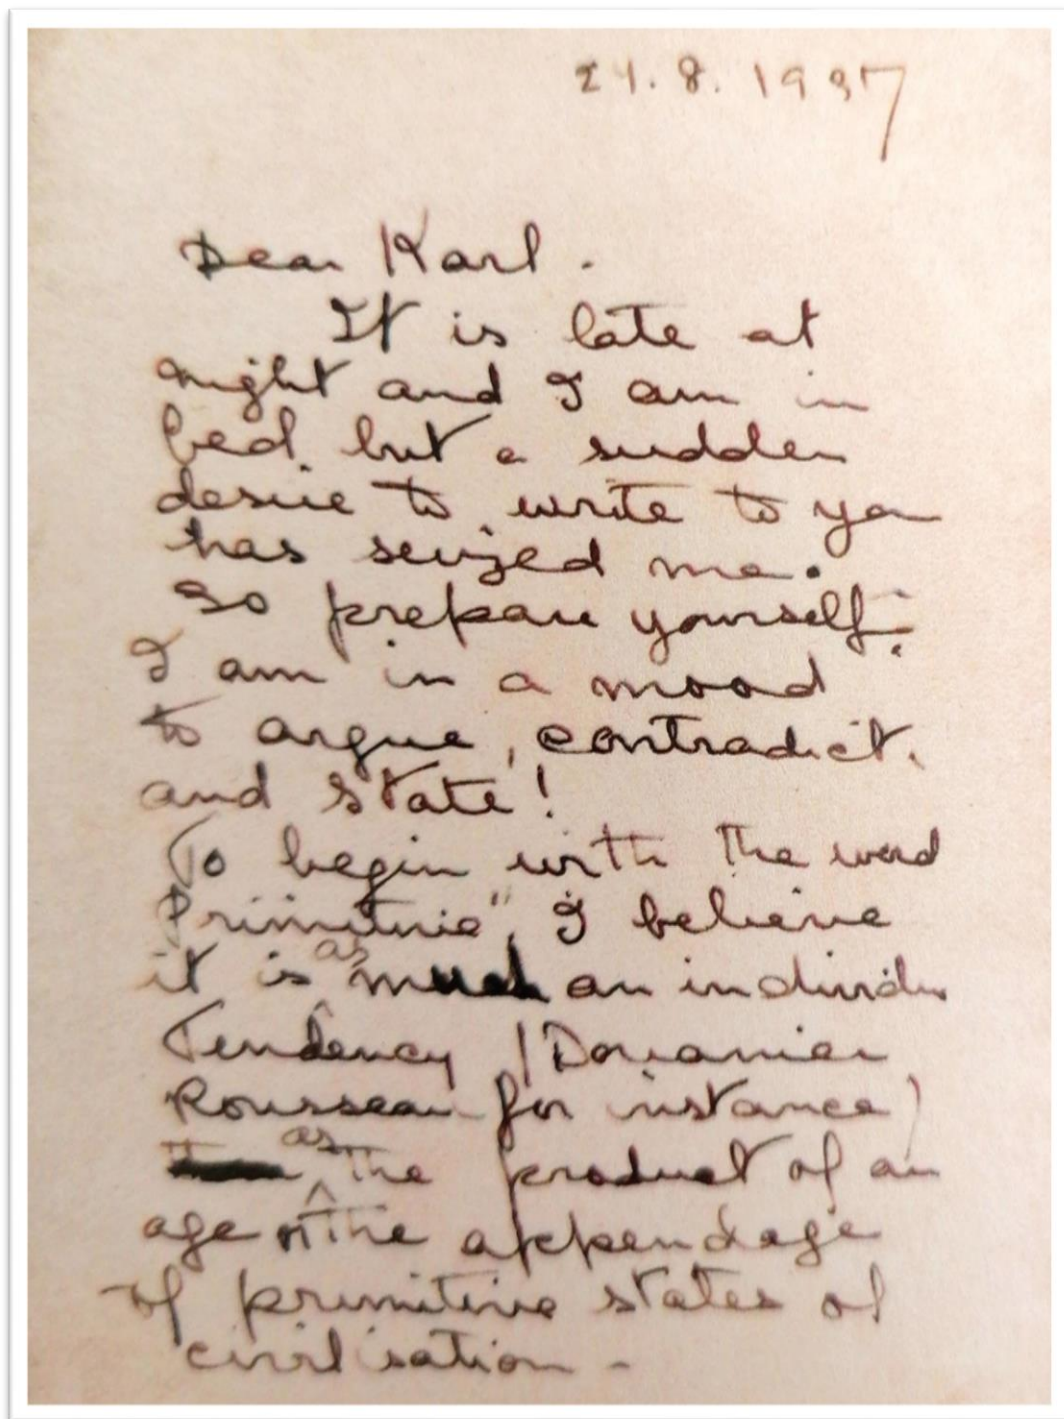 21.8.1937
Dear Karl.
It is late at
night and I am in
bed, but a sudden
desire to write to you
has seized me.
So prepare yourself.
I am in a mood
to argue, contradict.
and state!
To begin with the word
Primitive", I believe
it is as much an individu
Tendency (Douanier
Rousseau for instance)
as the product of an
age or the appendage
of primitive states of
civilisation -